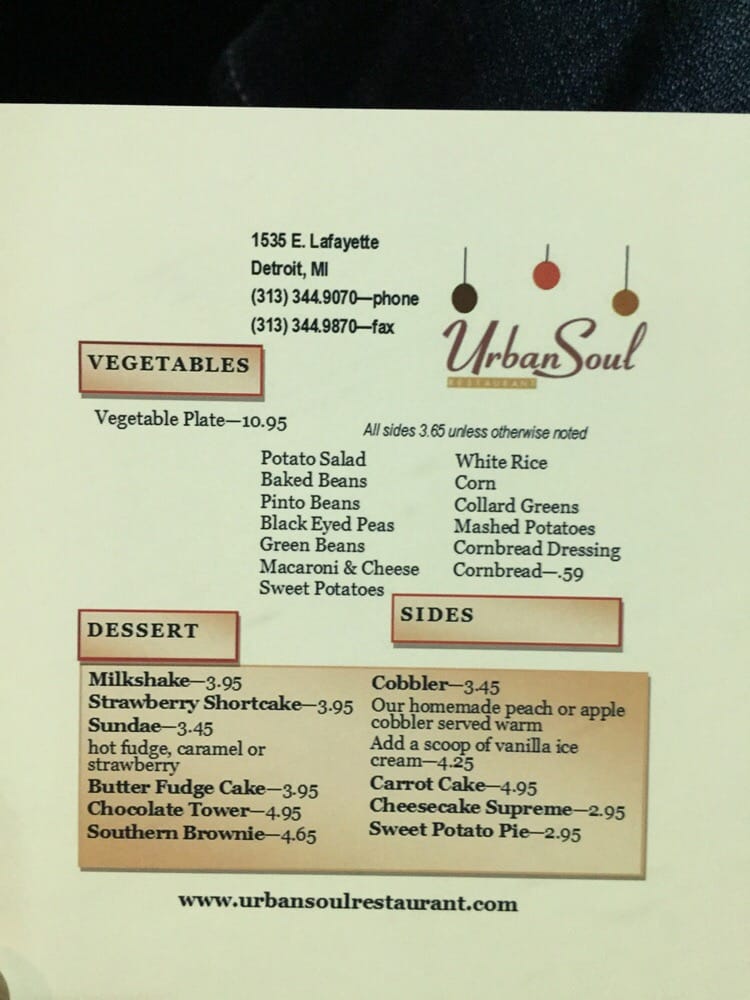 1535 E. Lafayette
Detroit, MI
(313) 344.9070—phone
(313) 344.9870—fax
Urban Soul
RESTAURANT
VEGETABLES
Vegetable Plate—10.95
All sides 3.65 unless otherwise noted
Potato Salad
Baked Beans
Pinto Beans
Black Eyed Peas
Green Beans
Macaroni & Cheese
Sweet Potatoes
White Rice
Corn
Collard Greens
Mashed Potatoes
Cornbread Dressing
Cornbread—.59
SIDES
DESSERT
Milkshake—3.95
Strawberry Shortcake—3.95
Sundae—3.45
hot fudge, caramel or
strawberry
Butter Fudge Cake—3.95
Chocolate Tower—4.95
Southern Brownie—4.65
Cobbler—3.45
Our homemade peach or apple
cobbler served warm
Add a scoop of vanilla ice
cream—4.25
Carrot Cake—4.95
Cheesecake Supreme—2.95
Sweet Potato Pie—2.95
www.urbansoulrestaurant.com